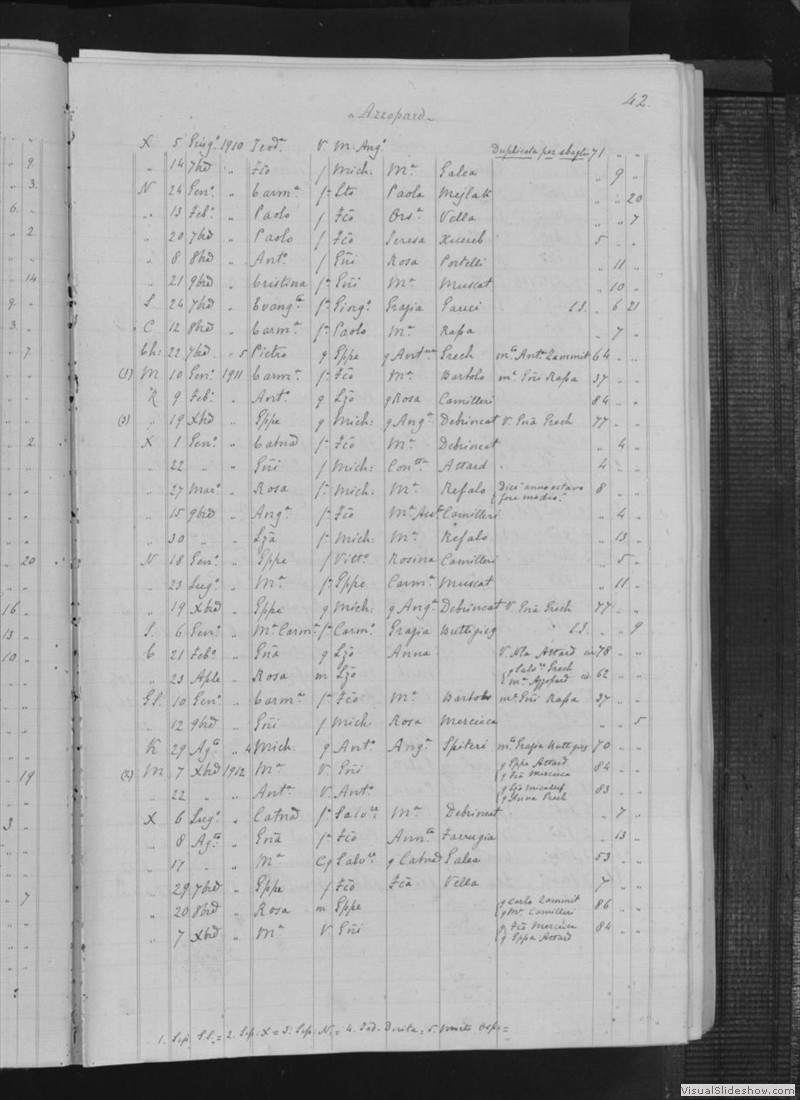 42.
„Azzopard„
X 5 Giugº 1910 Teodª V. M. Angº Duplicata per sbaglio 71 „ „
„ 14 7bre „ Fcõ f Mich: Mª Galea „ 9 „
N 24 Genº „ Carmª fª Lto Paola Mejlak „ „ 20
„ 13 Febº „ Paolo f Fcõ Orsª Vella „ „ 7
„ 20 7bre „ Paolo f Fcõ Teresa Xuereb 5 „ „
„ 8 8bre „ Antº f Gũi Rosa Portelli „ 11 „
„ 21 9bre „ Cristina fª Gũi Mª Muscat „ 10 „
S. 24 7bre „ Evangᵗᵃ fª Giorgº Grazia Pauci C.S. „ 6 21
„ C 12 8bre „ Carmª fª Paolo Mª Rapa „ 7 „
Ch: 22 7bre „ 5 Pietro g Gppe g Antⁿⁱᵃ Grech mª Antª Zammit 64 „ „
(1) M 10 Genº 1911 Carmª fª Fcõ Mª Bartolo mº Gũi Rapa 37 „ „
K 9 Febº „ Antº g Lzõ g Rosa Camilleri 84 „ „
(3) „ 19 Xbre „ Gppe g Mich: g Angª Debrincat V. Gũa Grech 77 „ „
X 1 Genº „ Catnã fª Fcõ Mª Debrincat „ 4 „
„ 22 „ „ Gũi f Mich: Conᵗᵃ Attard 4 „ „
„ 27 Marº „ Rosa fª Mich: Mª Refalo 8 „ „
„ 15 9bre „ Angª fª Fcõ Mª Antª Camilleri „ 4 „
„ 30 „ „ Lzã fª Mich: Mª Refalo „ 13 „
N 18 Genº „ Gppe f Vittº Rosina Camilleri „ 5 „
„ 23 Lugº „ Mª fª Gppe Carmª Muscat „ 11 „
„ 19 Xbre „ Gppe g Mich: g Angª Debrincat V. Gũa Grech 77 „ „
S. 6 Genº „ Mª Carmª fª Carmº Grazia Buttigieg C.S. „ „ 9
C 21 Febº „ Gũa g Lzõ Anna V. Nla Attard 78 „ „
„ 23 Aple „ Rosa m Lzõ { g Grech mª Azzopard 62 „ „
Gl. 10 Genº „ Carmª fª Fcõ Mª Bartolo mº Gũi Rapa 37 „ „
„ 12 9bre „ Gũi f Mich: Rosa Mercieca „ „ 5
K 29 Agᵗº „ 4 Mich g Antº Angª Spiteri mª Grazia Buttigieg 70 „ „
(2) M 7 Xbre 1912 Mª V. Gũi { g Gppe Attard g Fcã Mercieca 84 „ „
„ 22 „ „ Antª V. Antº { g Lzõ Micallef g Anna Grech 83 „ „
X 6 Lugº „ Catnã fª Salvʳᵉ Mª Debrincat „ 7 „
„ 8 Agᵗº „ Gũa fª Fcõ Annᵗᵃ Farrugia „ 13 „
„ 17 „ „ Mª Cg Salvʳᵉ g Catnã Galea 53 „ „
„ 29 7bre „ Gppe f Fcõ Fcã Vella 7 „ „
„ 20 8bre „ Rosa m Gppe { g Carlo Zammit g Mª Camilleri 86 „ „
„ 7 Xbre „ Mª V. Gũi { g Fcã Mercieca g Gppe Attard 84 „ „
1. Sep. Gl. = 2. Sep. X = 3. Sep. N. = 4. = 5. Morto Osp. =
9.
3.
6.
2
14
9
3
7
2
20
16
13
10
19
3
7
VisualSlideshow.com